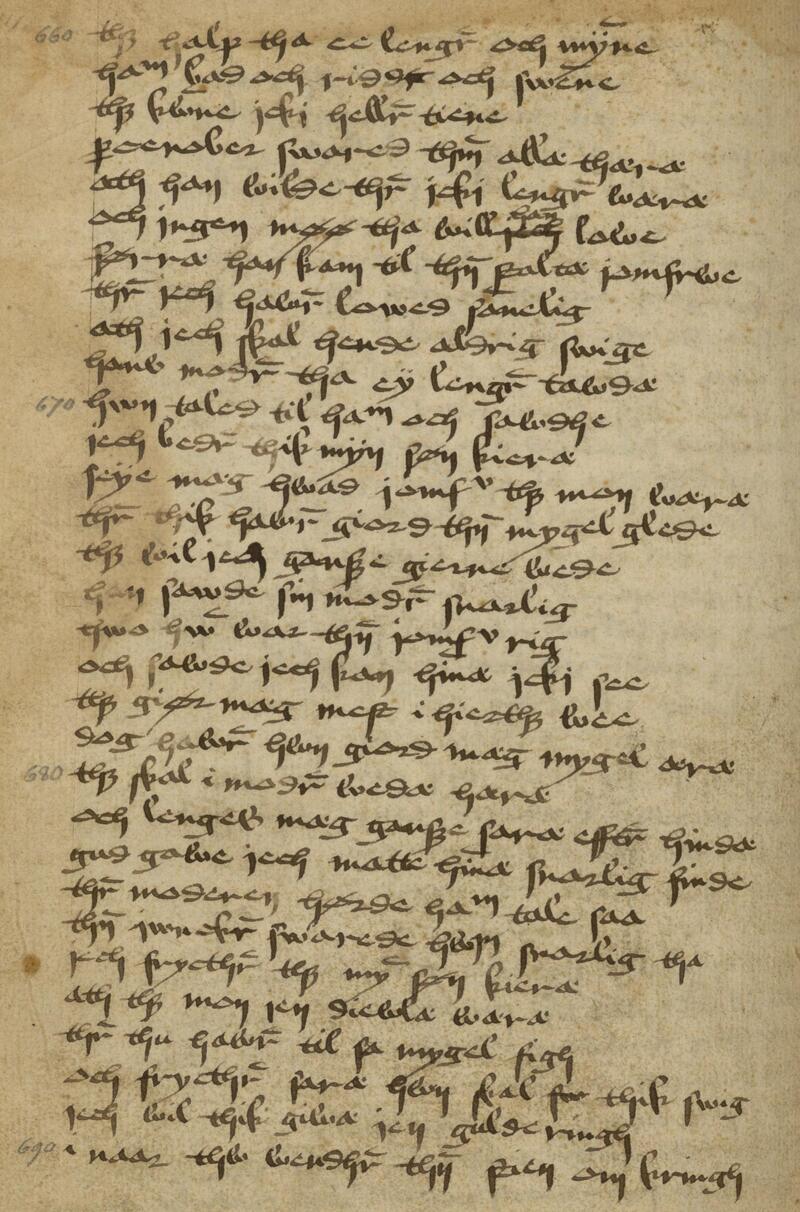 660 thz halp tha ee lengr̄ och mÿn̄e
ham bad och ridd̶e̶r och swēne
thz kwōne jcki hellr̄ tiene
percenober swared thm̄ allæ thæræ
ath han wilde thr̄ jcki lengr̄ wæræ
och jngen møø tha will han lowe
førræ han kam til thn̄ paltæ jomfrwe
thr̄ jech hawr̄ lowed sānelig
ath jech skal hende aldrig swige
hans modr̄ tha ey lengr̄ tawdæ
670 hwn taled til ham och sawdhe
jech bedr̄ thik mÿn søn kieræ
seÿe mæg hwad jomfv thz mon wæræ
thr̄ thik hawr̄ giord thn̄ mygel glede
thz wil jech gansze gierne wede
han sawde sin modr̄ snarlig
hwo hw̄ war thn̄ jomfv rig
och sawde jech kan hinæ jcki see
thz giør mæg mest i hierthz wee
dog hawr̄ hwn giord mæg mygel æræ
680 thz skal i modr̄ wedæ hæræ
och lenges mæg gansze saræ efftr̄ hindæ
gud gawe jech matte hinæ snarlig finde
thr̄ moderen hørde ham tale saa
thn̄ jwnckr̄ swarede hwn snarlig tha
jech frycthr̄ thz mȳ søn kieræ
ath thz mon jen diewlæ wæræ
thr̄ thu hawr̄ til sa mygel sigh
och frycthr̄ saræ hwn skal thik swig
jech wil thik giwæ jen gulde ringh
690 i naar thw wendhr̄ thn̄ stien om kringh